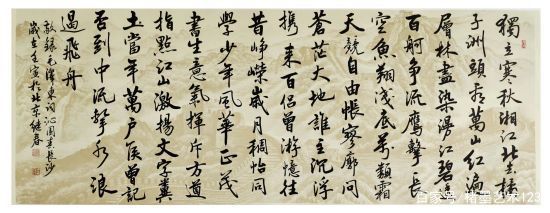 獨立寒秋湘江北去橘
子洲頭看萬山紅遍
層林盡染漫江碧透
百舸争流鷹擊長
空魚翔淺底萬類霜
天競自由悵寥廓問
蒼茫大地誰主沉浮
携来百侣曾游憶往
昔峥嵘歲月稠恰同
學少年風華正茂
書生意氣揮斥方遒
指點江山激揚文字糞
土當年萬户侯曾記
否到中流擊水浪
遏飛舟
敬録毛澤東詞沁園春長沙
歲在壬寅於北京継春
百家号/楷墨艺术123